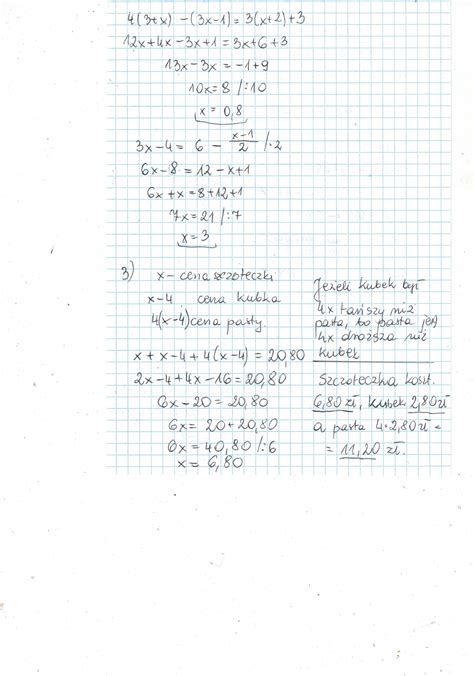 4(3+x) -(3x-1)=3(x+2)+3
12x+4x-3x+1=3x+6+3
13x-3x=-1+9
10x=8 /:10
x=0,8
3x-4= 6 - \frac{x-1}{2} /·2
6x-8=12-x+1
6x+x=8+12+1
7x=21 /:7
x=3
3) x- cena szczoteczki
x-4 cena kubka
4(x-4) cena pasty
x+x-4+4(x-4)=20,80
2x-4+4x-16=20,80
6x-20=20,80
6x=20+20,80
6x=40,80/:6
x=6,80
Jeżeli kubek był
4x tańszy niż
pasta, to pasta jest
4x droższa niż
kubek
Szczoteczka koszt.
6,80zł, kubek 2,80zł
a pasta 4·2,80zł=
= 11,20 zł.